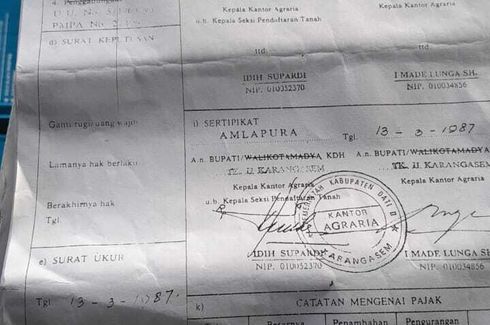 4. Penggabungan
Kepala Kantor Agraria
Kepala Kantor Agraria
u.b. Kepala Seksi Pendaftaran Tanah
PMPA No.
d) SURAT KEPUTUSAN
ttd.
ttd.
IDIH SUPARDI
NIP. 010052370
I MADE LUNGA SH.
NIP. 010034856
Ganti rugi/uang wajib
i) SERTIPIKAT
AMLAPURA Tgl. 13 - 3 - 1987
Lamanya hak berlaku
A.n. BUPATI/WALIKOTAMADYA KDH
TK. II KARANGASEM
A.n. BUPATI/WALIKOTAMADYA
TK. II KARANGASEM
Berakhirnya hak
Tgl.
Kepala Kantor Agraria
u.b. Kepala Seksi Pendaftaran Tanah
Kepala Kantor
KABUPATEN DATI II
KANTOR
AGRARIA
KARANGASEM
IDIH SUPARDI
NIP. 010052370
I MADE LUNGA SH.
NIP. 010034856
e) SURAT UKUR
Tgl. 13 - 3 - 1987.
k) CATATAN MENGENAI PAJAK
Besarnya Penambahan Pengurangan